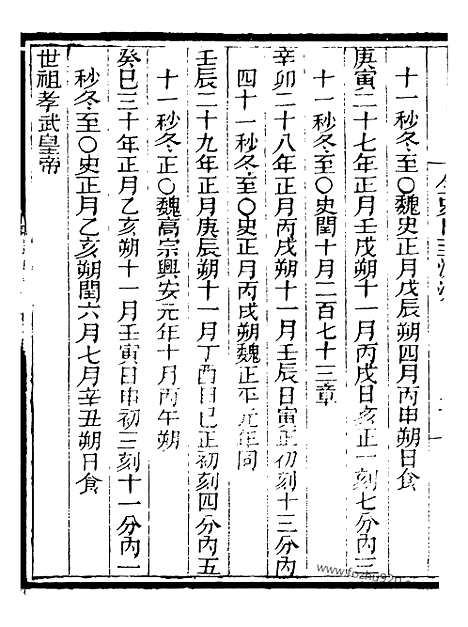 十一秒冬至○魏史正月戊辰朔四月丙申朔日食
庚寅二十七年正月壬戌朔十一月丙戌日亥正一刻七分內三
十一秒冬至○史閏十月二百七十三章
辛卯二十八年正月丙戌朔十一月壬辰日寅正初刻十三分內
四十一秒冬至○史正月丙戌朔魏正平元年同
壬辰二十九年正月庚辰朔十一月丁酉日巳正初刻四分內五
十一秒冬正○魏高宗興安元年十月丙午朔
癸巳三十年正月乙亥朔十一月壬寅日申初三刻十一分內一
秒冬至○史正月乙亥朔閏六月七月辛丑朔日食
世祖孝武皇帝
www.fozhu920.com